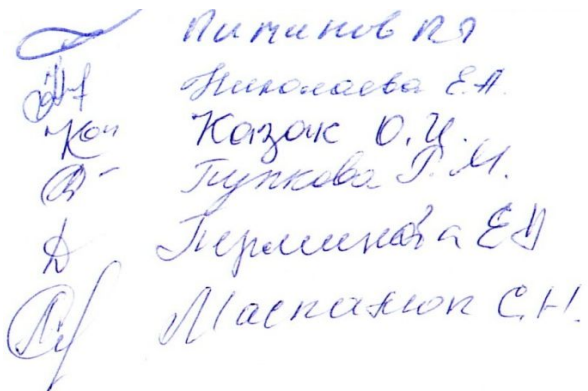 Пиминов П Л
Николаева Е.А.
Казак О.Ц.
Пупкова Г.М.
Перминова Е Д
Маспанюк С.Н.